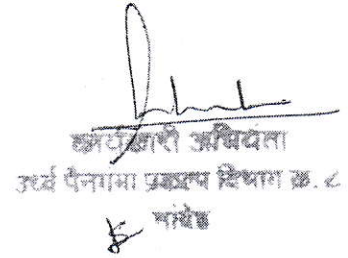 कार्यकारी अभियंता
उर्ध्व पैनगंगा प्रकल्प विभाग क्र. ८
नांदेड